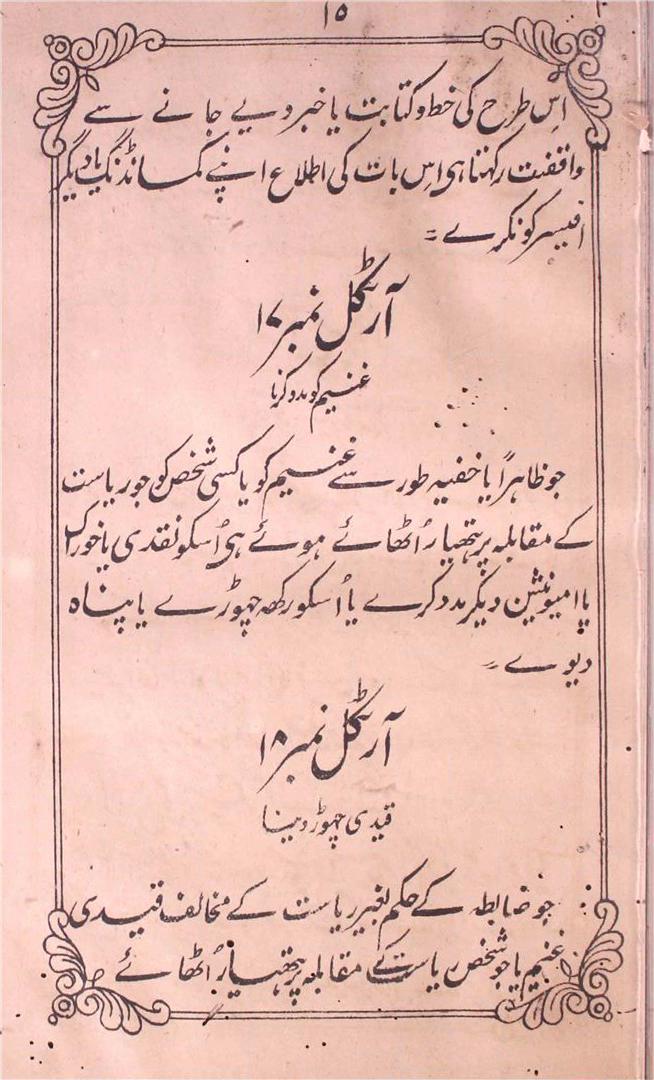 ۱۵
اِس طرح کی خط و کتابت یا خبر دیے جانے سے
واقفیت رکھتا ہی اِس بات کی اطلاع اپنے کمانڈنگ یا دیگر
افیسر کو نکرے =
آرٹیکل نمبر ۱۷
غنیم کو مدد کرنا
جو ظاہراً یا خفیہ طور سے غنیم کو یا کسی شخص کو جو ریاست
کے مقابلہ پر ہتھیار اُٹھائے ہوئے ہی اُسکو نقدی یا خوراک
یا امیونیشن دیکر مدد کرے یا اُسکو رکھہ چھوڑے یا پناہ
دیوے =
آرٹیکل نمبر ۱۸
قیدی چھوڑ دینا
جو ضابطہ کے حکم بغیر ریاست کے مخالف قیدی
غنیم یا جو شخص ریاست کے مقابلہ پر ہتھیار اُٹھائے